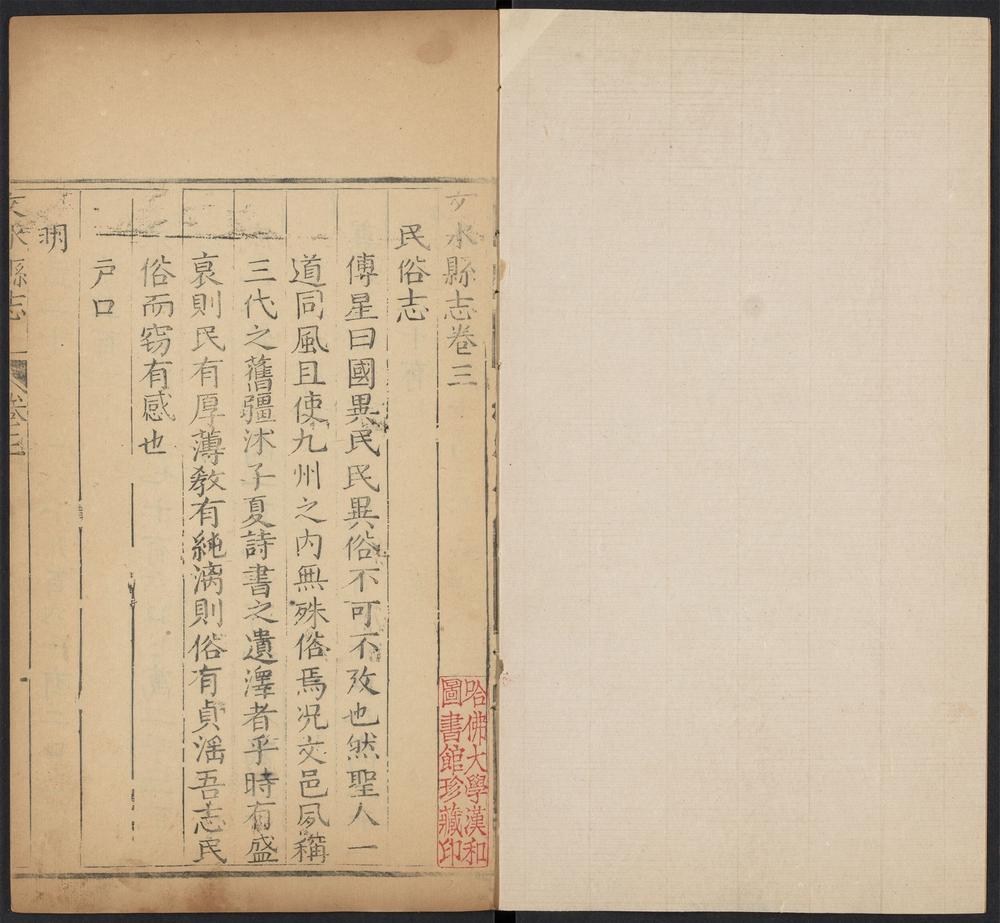 文水縣志卷三
民俗志
傅星曰國異民民異俗不可不攷也然聖人一
道同風且使九州之内無殊俗焉况文邑夙稱
三代之舊疆沐子夏詩書之遺澤者乎時有盛
衰則民有厚薄教有純漓則俗有貞滛吾志民
俗而窃有感也
户口
明
文水縣志
卷三
哈佛大學漢和
圖書館珍藏印